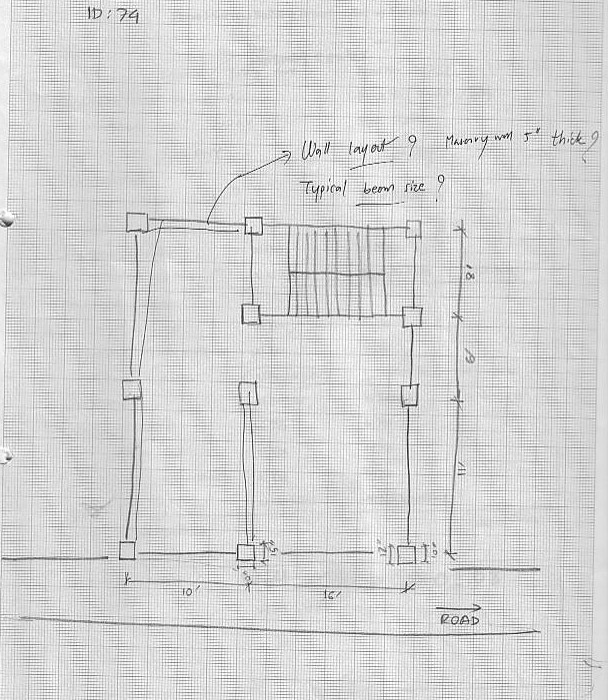 ID: 74
Wall layout ? Masonry wall 5" thick?
Typical beam size ?
8'
11'
10'
16'
ROAD